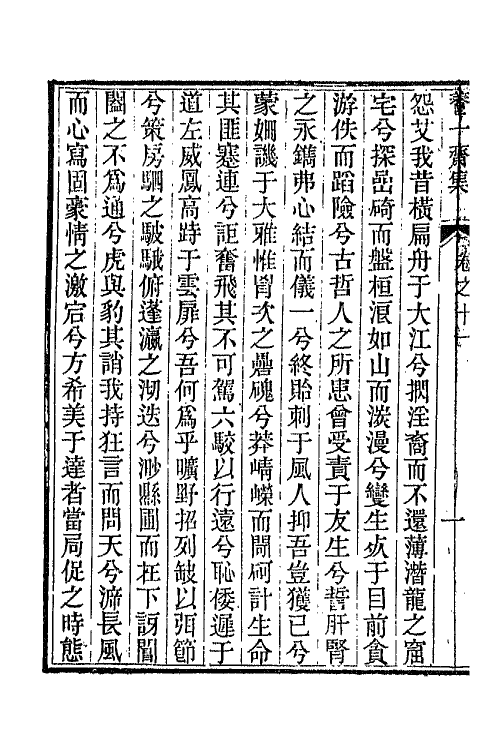 養一齋集 卷之十一 一
怨艾我昔橫扁舟于大江兮擱淫裔而不還薄潛龍之窟
宅兮探嵒碕而盤桓浪如山而淡漫兮變生于目前貪
游佚而蹈險兮古哲人之所患會受責于友生兮誓肝腎
之永鐫弗心結而儀一兮終貽刺于風人抑吾豈獲已兮
蒙姍譏于大雅惟胷次之礧磈兮莽崝嶸而閜砢計生命
其匪蹇連兮詎奮飛其不可駕六駮以行遠兮恥倭遲于
道左威鳳高跱于雲扉兮吾何爲乎曠野招列缺以弭節
兮策房駟之駊騀俯蓬瀛之沏迭兮渺縣圃而在下訶閽
闔之不爲通兮虎與豹其誚我持狂言而問天兮渧長風
而心寫固豪情之激宕兮方希美于達者當局促之時態